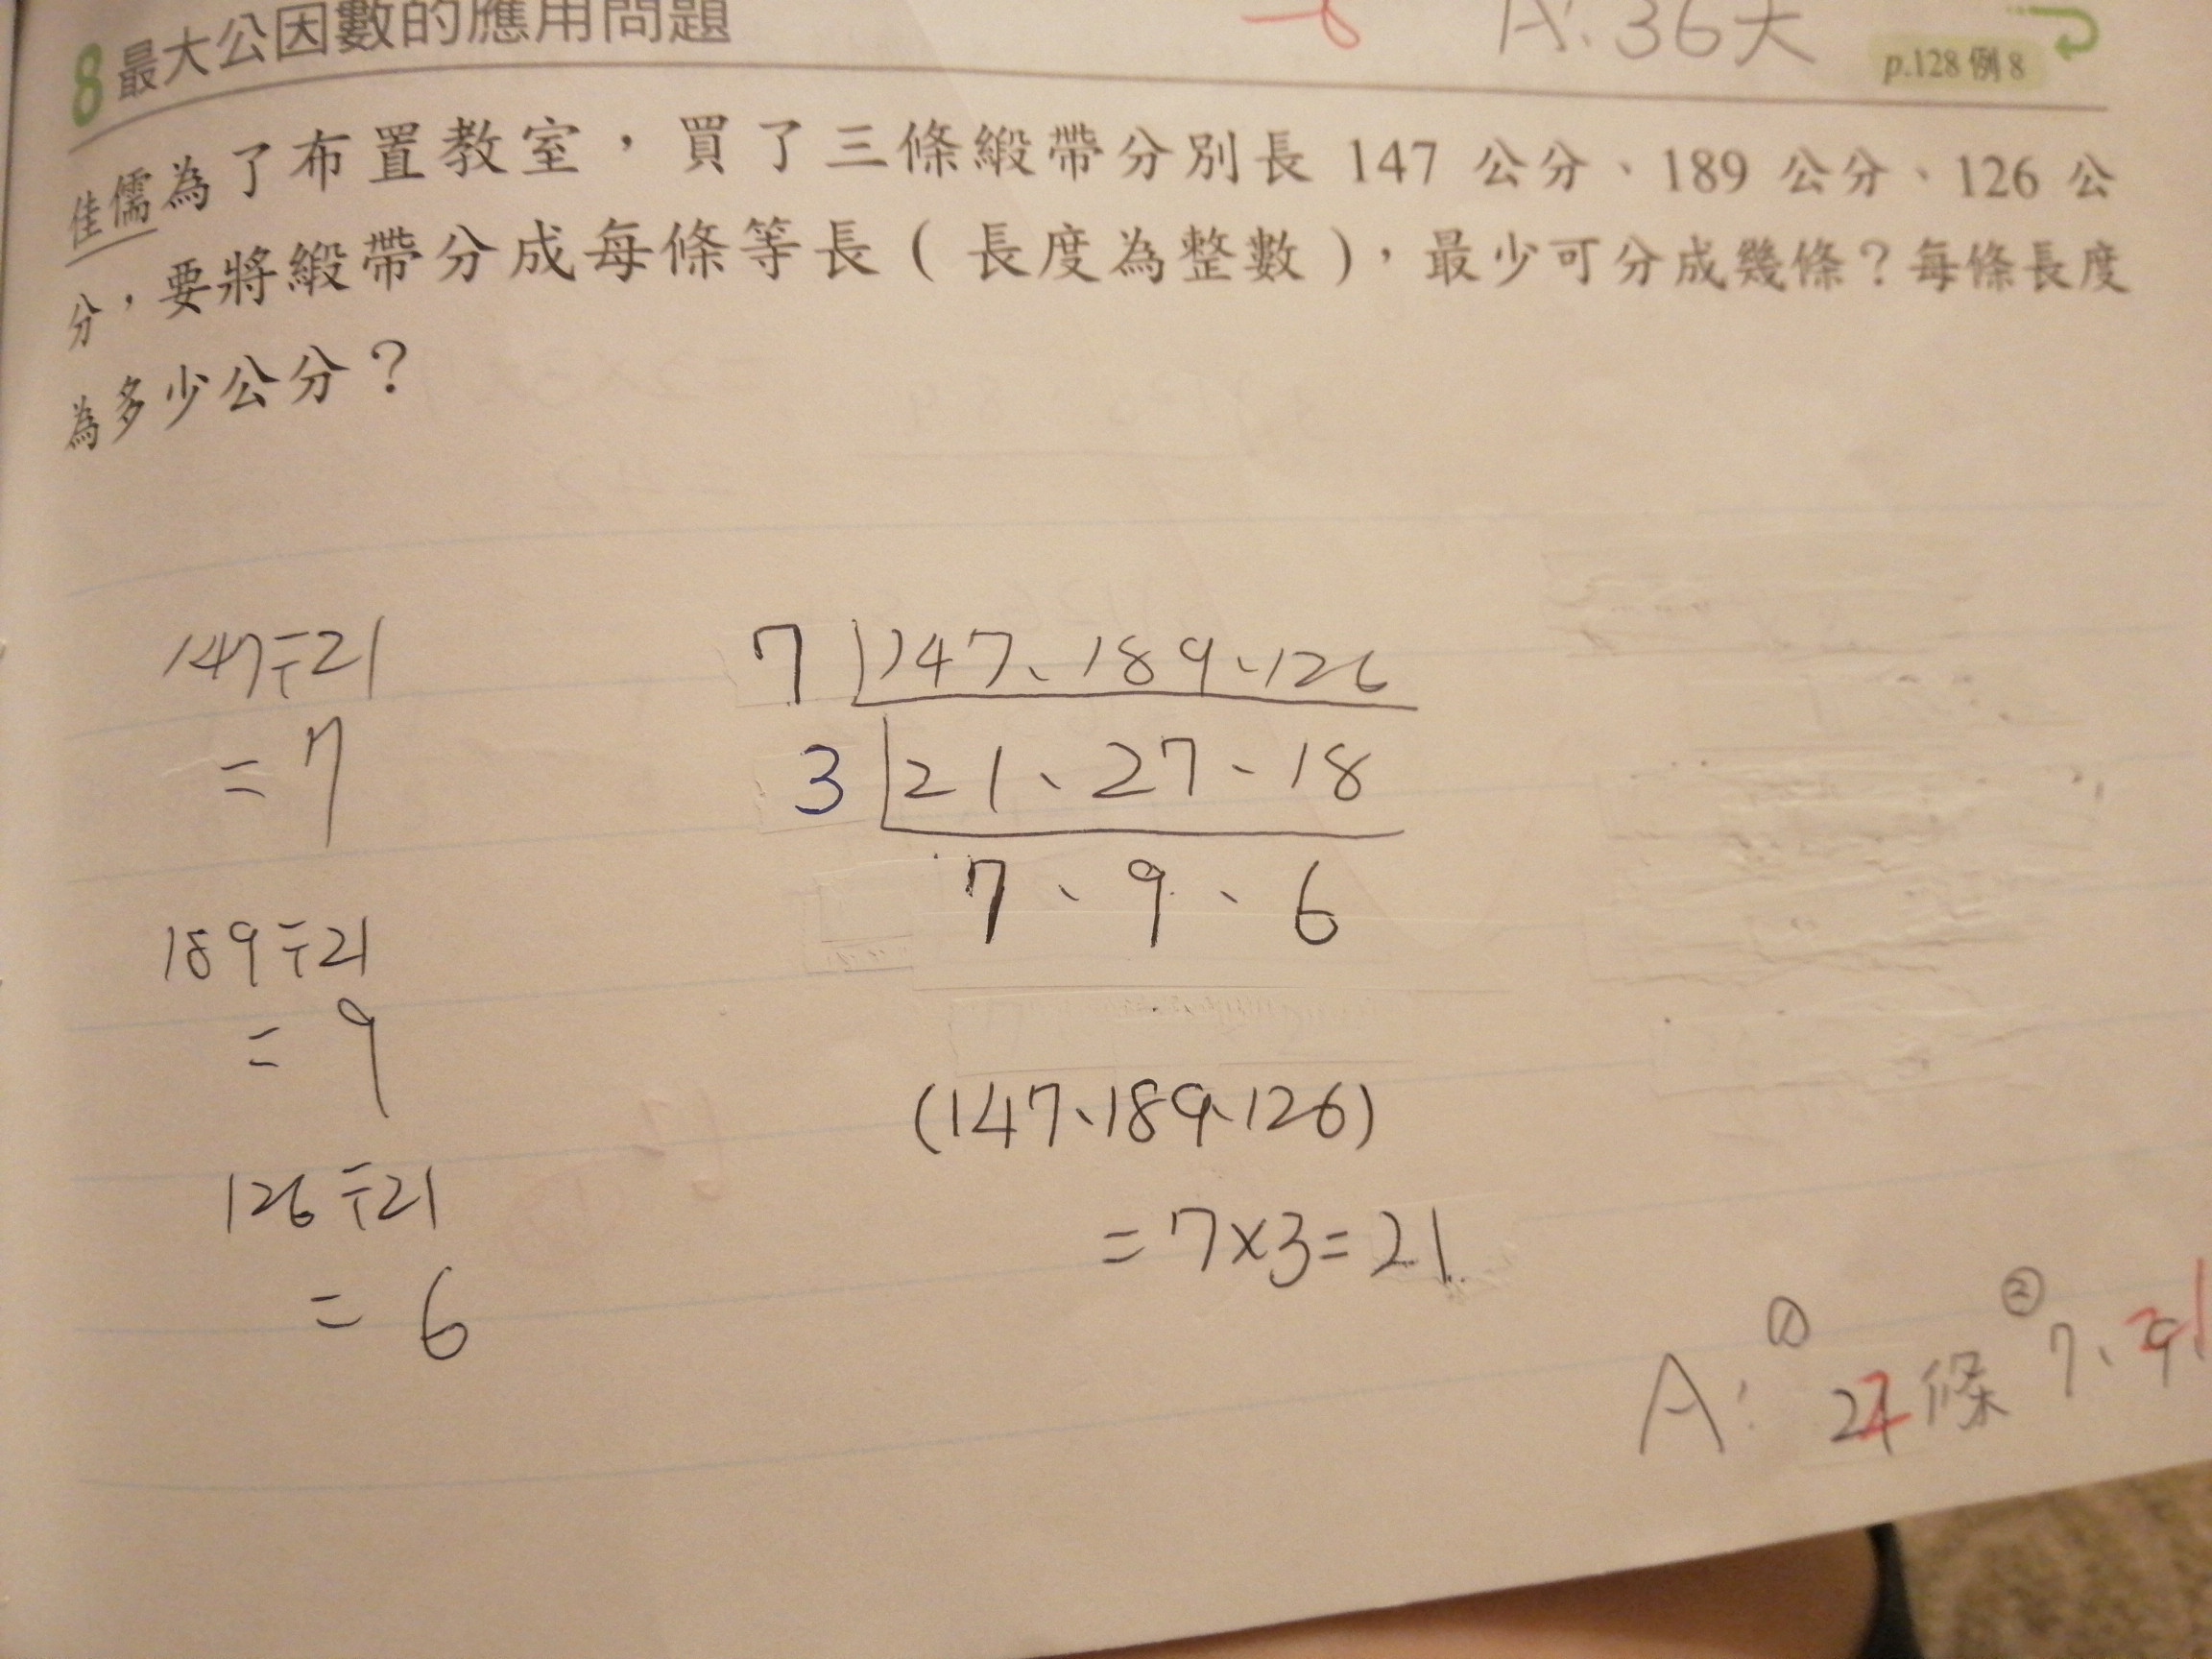 8 最大公因數的應用問題
A: 36天
p.128 例 8
佳儒為了布置教室，買了三條緞帶分別長 147 公分、189 公分、126 公
分，要將緞帶分成每條等長（長度為整數），最少可分成幾條？每條長度
為多少公分？
147÷21
= 7
189÷21
= 9
126÷21
= 6
7 147、189、126
3 21、27、18
7、9、6
(147、189、126)
=7×3=21
A: ① 條 ② 7、